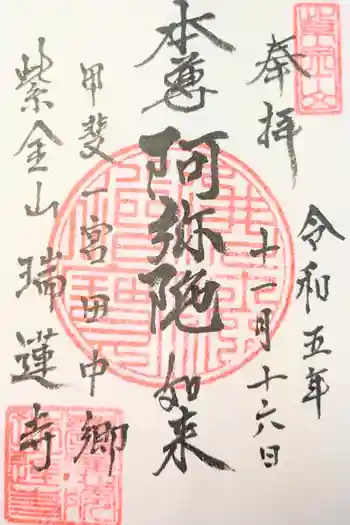 奉拝
令和五年
十一月十六日
本尊
阿弥陀如来
甲斐一宮田中郷
紫金山瑞蓮寺